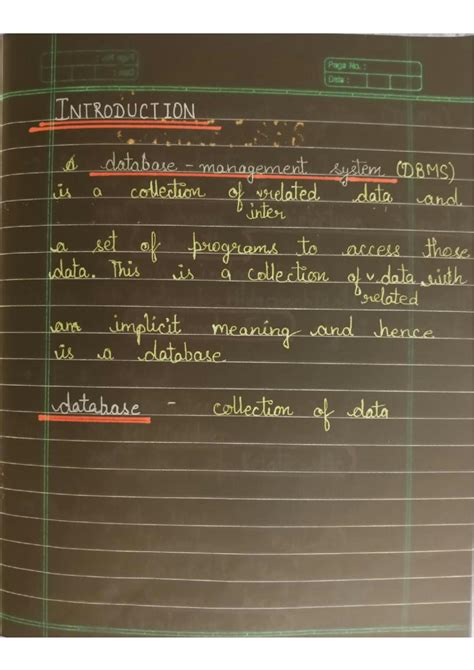 Page No. :
Date :
INTRODUCTION
A database-management system (DBMS)
is a collection of ∨related data and
inter
a set of programs to access those
data. This is a collection of ∨ data with
related
an implicit meaning and hence
is a database
database - collection of data